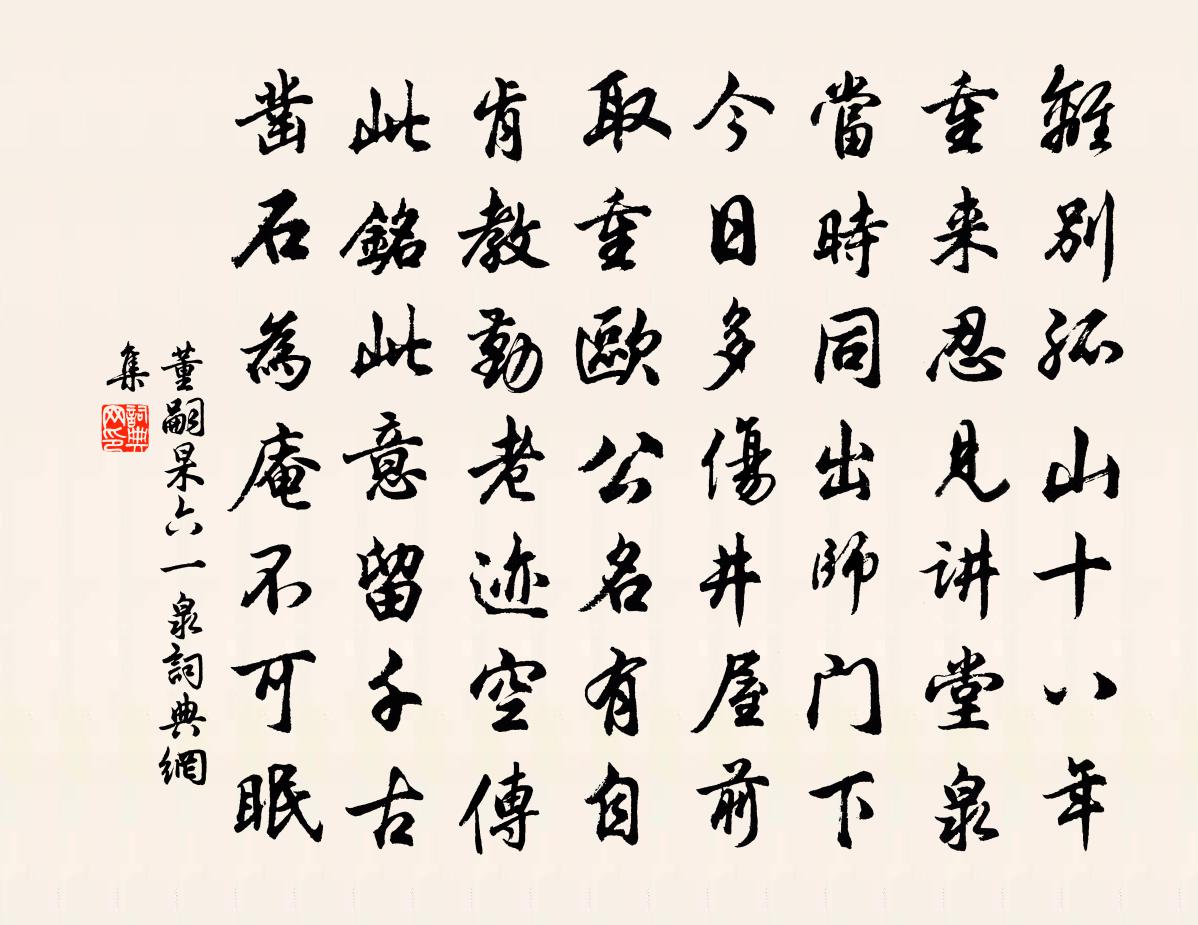 離别孤山十八年
重来忍見讲堂泉
當時同出師门下
今日多傷井屋前
取重歐公名有自
肯教勤老迹空傳
此銘此意留千古
凿石為庵不可眠
董嗣杲六一泉詞典網
集
詞典
网印